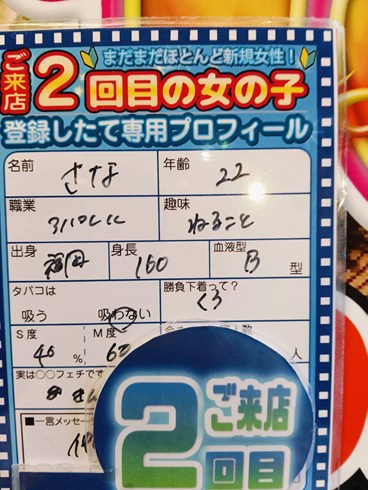 まだまだほとんど新規女性！
ご来店2回目の女の子
登録したて専用プロフィール
名前 さな 年齢 22
職業 趣味 ねること
出身 福岡 身長 160 血液型 B 型
タバコは 勝負下着って？
吸う 吸わない くろ
S度 M度
40 % 60 人
実は○○フェチです
■一言メッセー
2
ご来店
回目